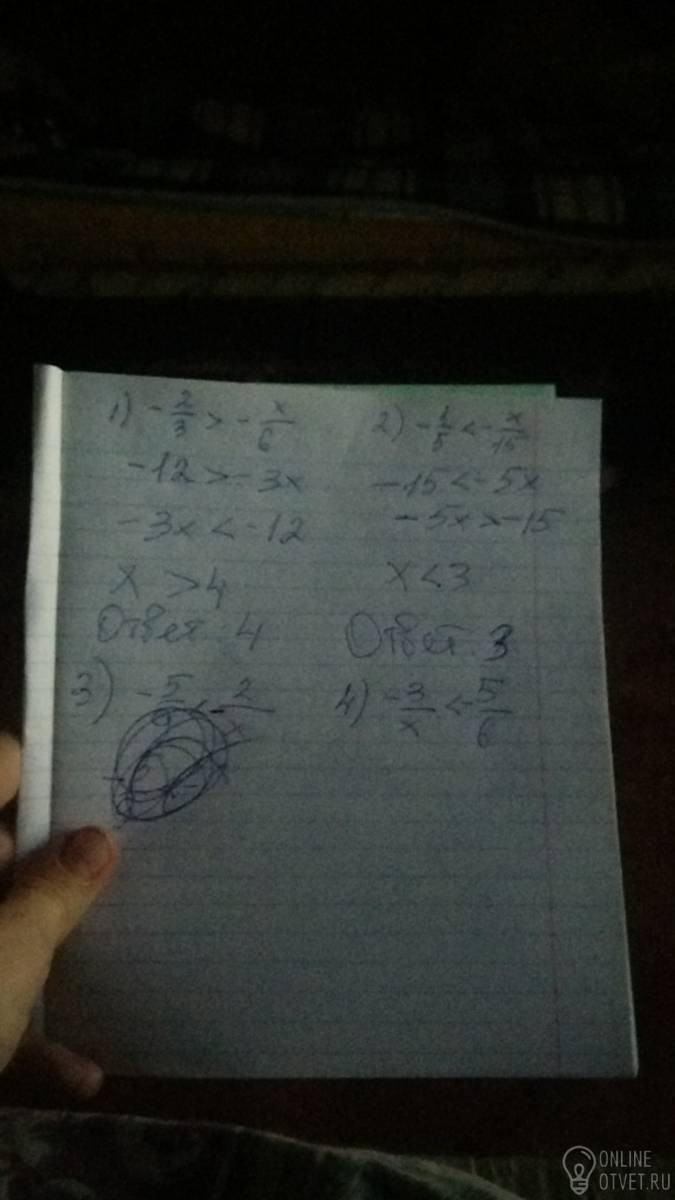 1) -2/3 > -x/6
-12 > -3x
-3x < -12
x > 4
Ответ: 4
2) -1/5 < -x/15
-15 < -5x
-5x > -15
x < 3
Ответ: 3
3) -5/ < -2/
4) -3/x < -5/6
ONLINE
OTVET.RU